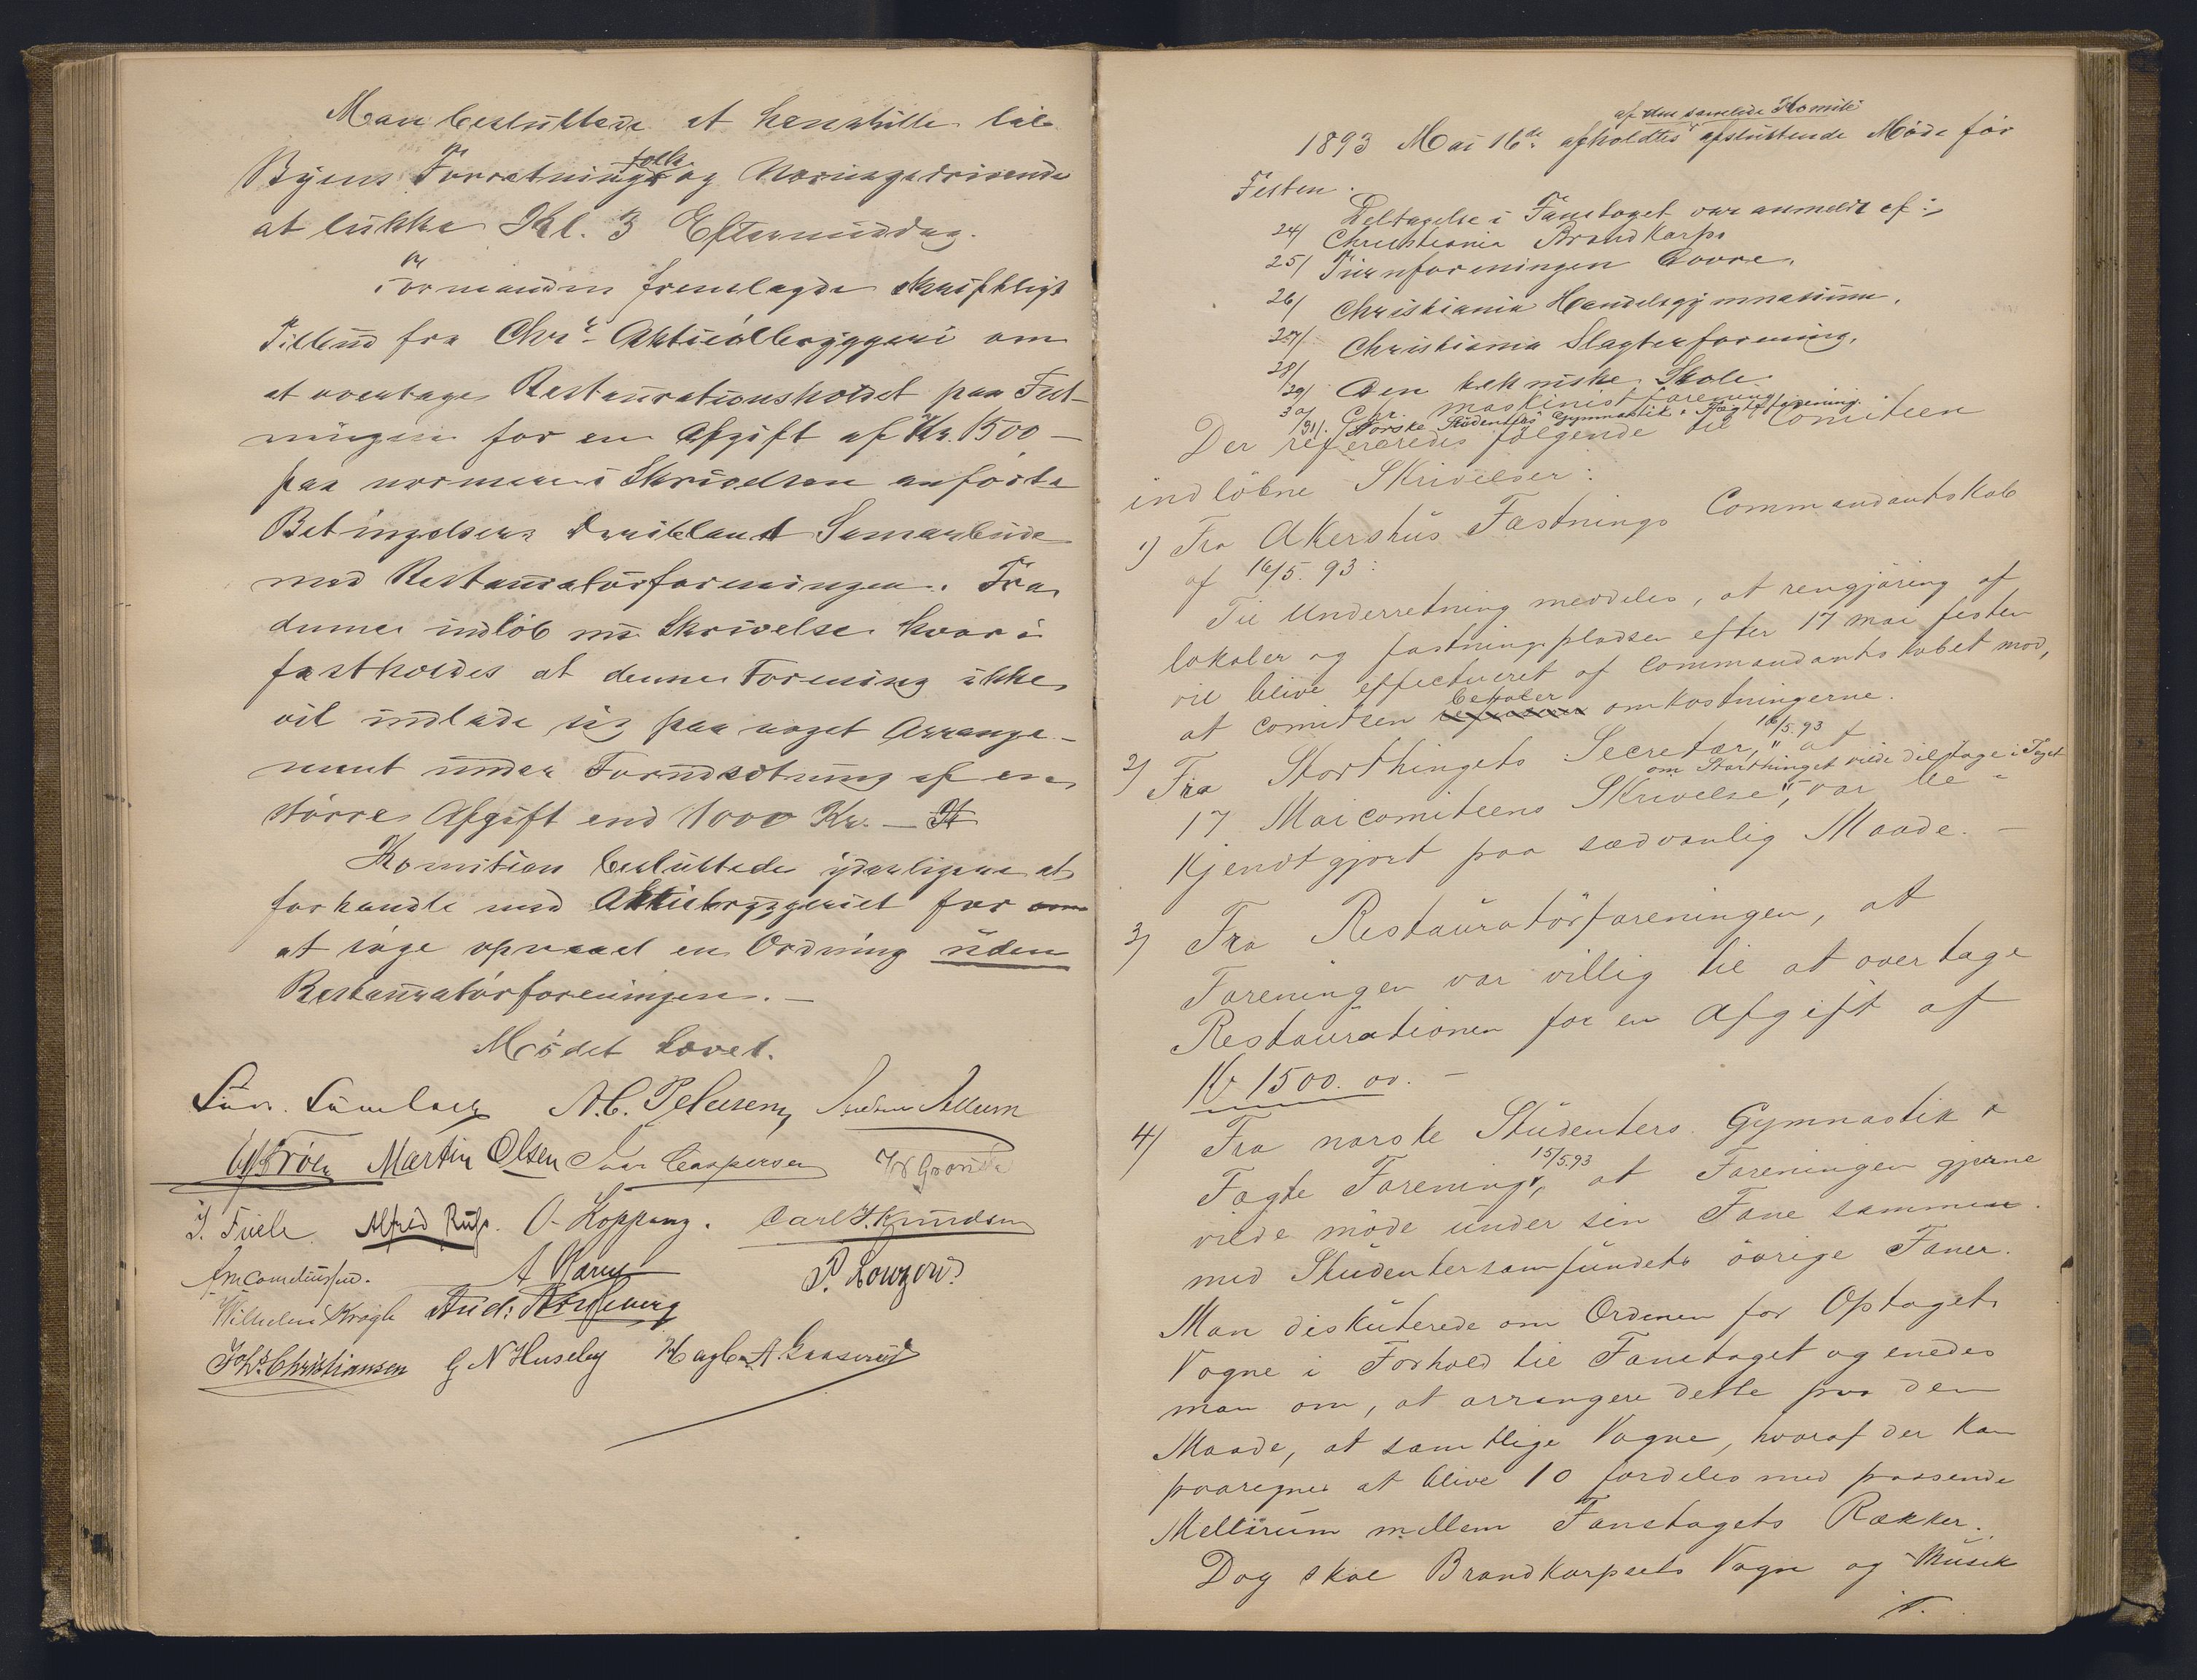 Man besluttede at henstille til
Byens Forretningsfolk og Næringsdrivende
at lukke Kl. 3 Eftermiddag.
Formanden fremlagde skriftligt
Tilbud fra Chr. Aktieølbryggeri om
at overtage Restaurationsholdet paa Fæst-
ningen for en Afgift af Kr. 1500 –
paa nærmere i Skrivelsen anførte
Betingelser, deriblandt Samarbeide
med Restauratørforeningen. Fra
denne indløb nu Skrivelse hvori
fastholdes at denne Forening ikke
vil indlade sig paa noget Arrange-
ment under Forudsætning af en
større Afgift end 1000 Kr. –
Komiteen besluttede yderligere at
forhandle med Aktiebryggeriet for
at søge opnaaet en Ordning uden
Restauratørforeningen. –
Mødet hævet.
A. C. Petersen
Martin Olsen Ivar Caspersen
Alfred Ruhs. O. Koppang. Carl F. Knudsen
P. Lowzow
Wilhelm Kragh
Johs. Christiansen G N Huseby
1893 Mai 16de afholdtes af den samlede Komité afsluttende Møde for
Festen.
Deltagelse i Fanetoget var anmeldt af:
24/ Christiania Brandkorps
25/ Turnforeningen Govre.
26/ Christiania Handelsgymnasium.
27/ Christiania Slagterforening.
28/
29/ Den tekniske Skole.
30/ Chr. maskinistforening
31/. Norske Studenters Gymnastik & Fægteforening.
Der refereredes følgende til Comiteen
indløbne Skrivelser:
1) Fra Akershus Fæstnings Commandantskab
af 16/5. 93:
Til Underretning meddeles, at rengjøring af
lokaler og fæstningspladsen efter 17 mai festen
vil blive effectueret af Commandantskabet mod,
at comiteen betaler omkostningerne.
2) Fra Storthingets Secretær, 16/5. 93 at
17 Maicomiteens Skrivelse, om Storthinget vilde deltage i Toget, var be-
kjendtgjort paa sædvanlig Maade. –
3) Fra Restauratørforeningen, at
Foreningen var villig til at overtage
Restaurationen for en Afgift af
Kr 1500. oo. –
4) Fra norske Studenters Gymnastik &
Fægte Forening, 15/5.93 at Foreningen gjerne
vilde møde under sin Fane sammen
med Studentersamfundets øvrige Faner.
Man diskuterede om Ordenen for Optogets
Vogne i Forhold til Fanetoget og enedes
man om, at arrangere dette paa den
Maade, at samtlige Vogne, hvoraf der kan
paaregnes at blive 10 fordeles med passende
Mellerum mellem Fanetogets Rækker.
Dog skal Brandkorpsets Vogn og Musik